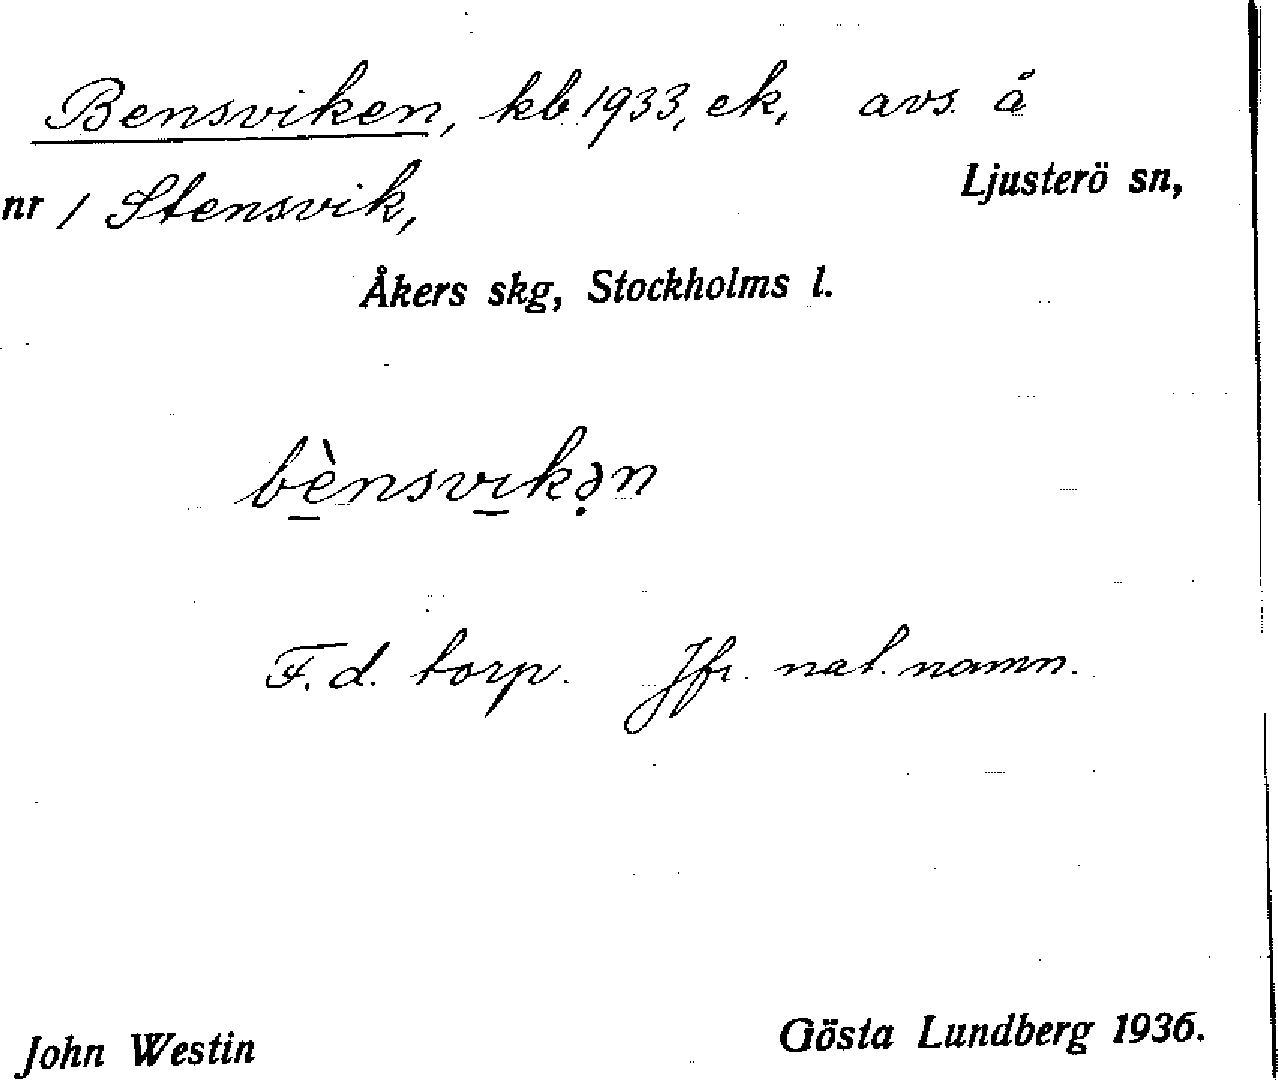 Bensviken, kb. 1933, ek, avs. å
nr 1 Stensvik, Ljusterö sn,
Åkers skg, Stockholms l.
bènsvıkə̣n
F.d. torp. Jfr. nat. namn.
John Westin Gösta Lundberg 1936.